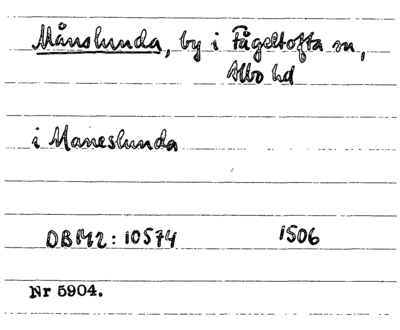 Månslunda, by i Fågeltofta sn,
Albo hd
i Maneslunda
DBM2: 10574 1506
Nr 5904.